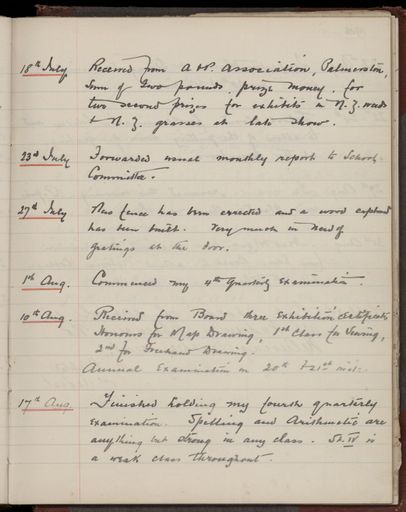 18th July Received from A & P. Association, Palmerston,
Sum of two pounds, prize money, for
two second prizes for exhibits in N. Z. weeds
& N. Z. grasses at late show.
23rd July Forwarded usual monthly report to School-
Committee.
27th July New fence has been errected and a wood cupboard
has been built. Very much in need of
gratings at the door.
1st Aug. Commenced my 4th Quarterly Examination.
10th Aug. Received from Board three Exhibition Certificates
Honours for Map Drawing, 1st Class for Sewing,
2nd for Freehand Drawing.
Annual Examination on 20th & 21st inst.
17th Aug. Finished holding my fourth quarterly
Examination. Spelling and Arithmetic are
anything but strong in any class. St. IV is
a weak class throughout.